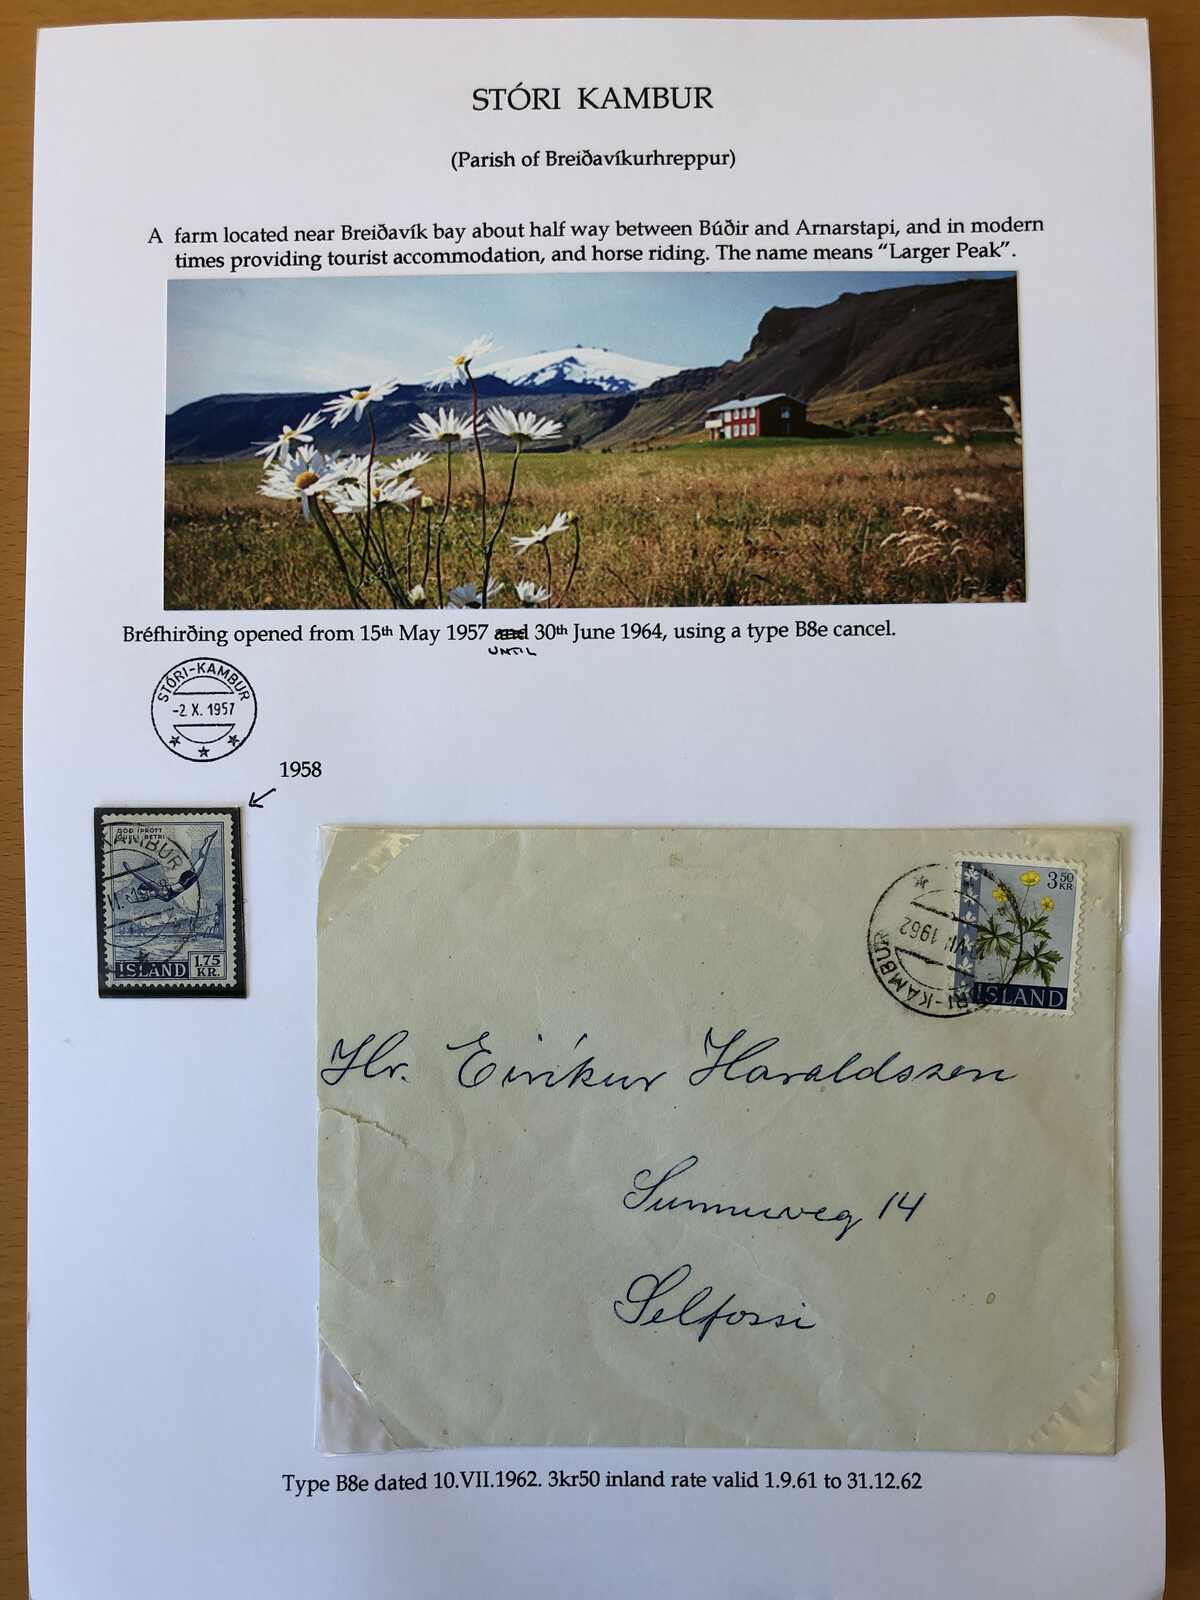 STÓRI KAMBUR
(Parish of Breiðavíkurhreppur)
A farm located near Breiðavík bay about half way between Búðir and Arnarstapi, and in modern
times providing tourist accommodation, and horse riding. The name means “Larger Peak”.
Bréfhirðing opened from 15th May 1957 and 30th June 1964, using a type B8e cancel.
UNTIL
STÓRI-KAMBUR
-2.X.1957
1958
GÓÐ ÍÞRÓTT
GULLI BETRI
KAMBUR
ÍSLAND 1,75
KR.
3 50
KR
ÍSLAND
RI-KAMBUR
VII 1962
Hr. Eiríkur Haraldssen
Sunnuveg 14
Selfossi
Type B8e dated 10.VII.1962. 3kr50 inland rate valid 1.9.61 to 31.12.62